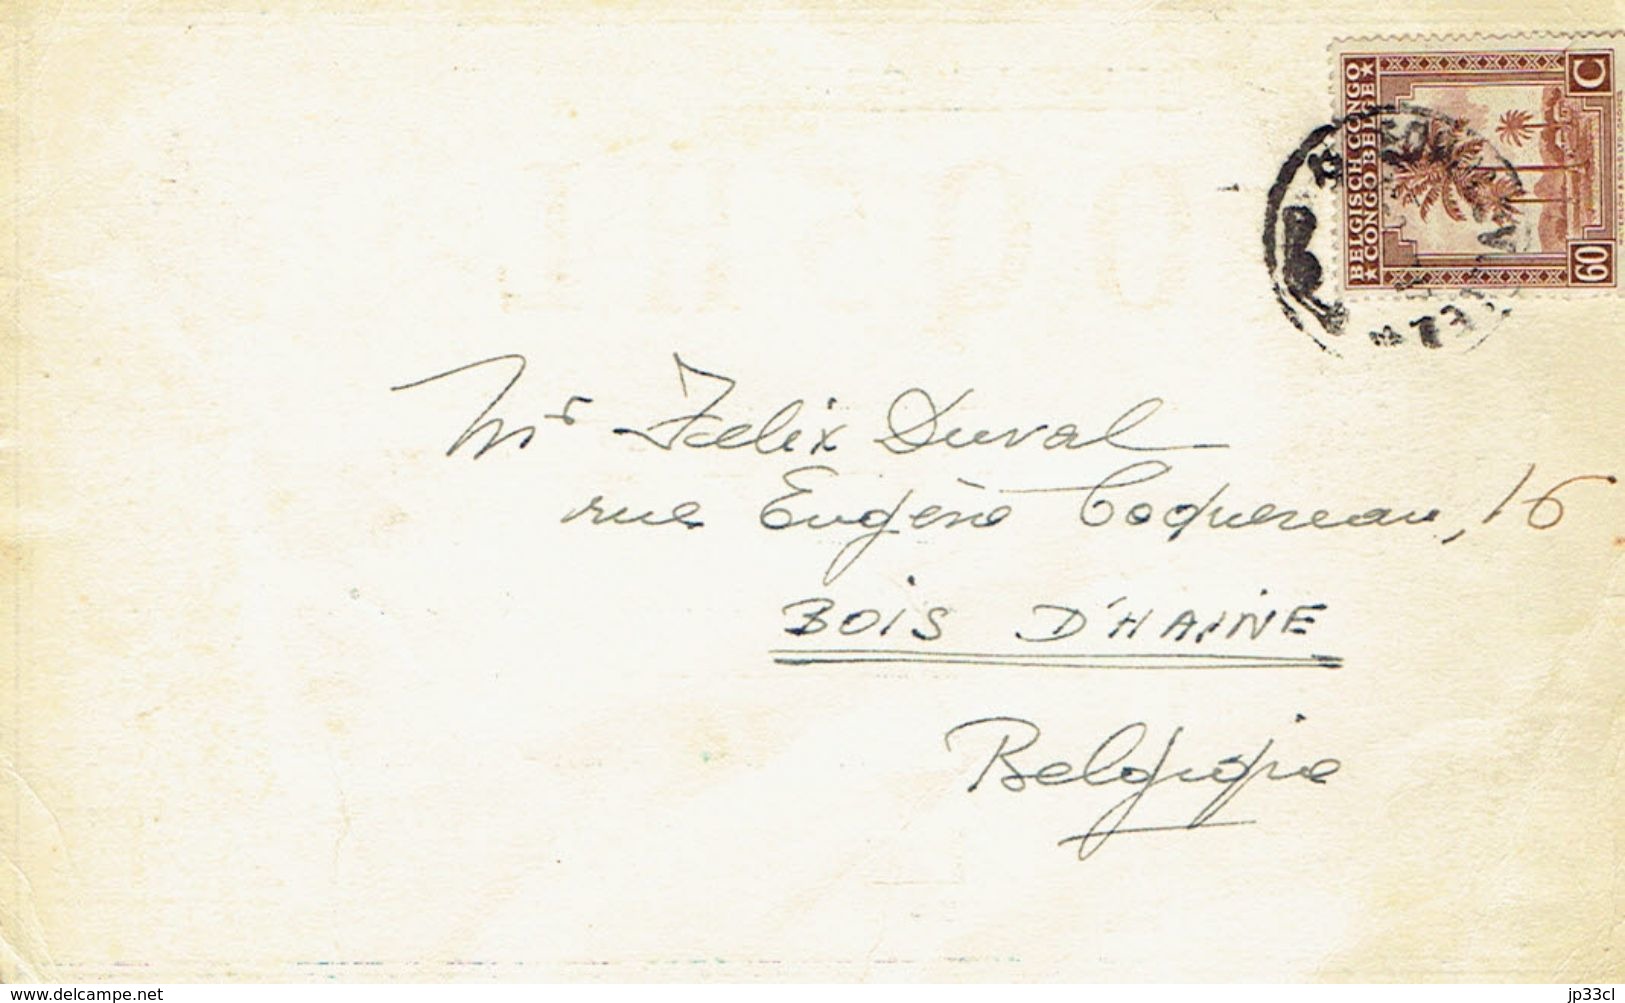 BELGISCH CONGO
★ CONGO BELGE ★
C
60
Mr Felix Duval
rue Eugène Coquereau, 16
BOIS D'HAINE
Belgique
www.delcampe.net
jp33cl